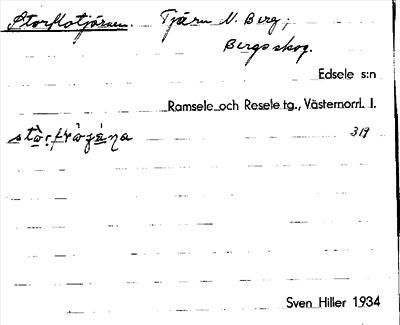 Storflotjärnen. Tjärn N. Berg;
Bergs skog.
Edsele s:n
Ramsele och Resele tg., Västernorrl. l.
319
Sven Hiller 1934